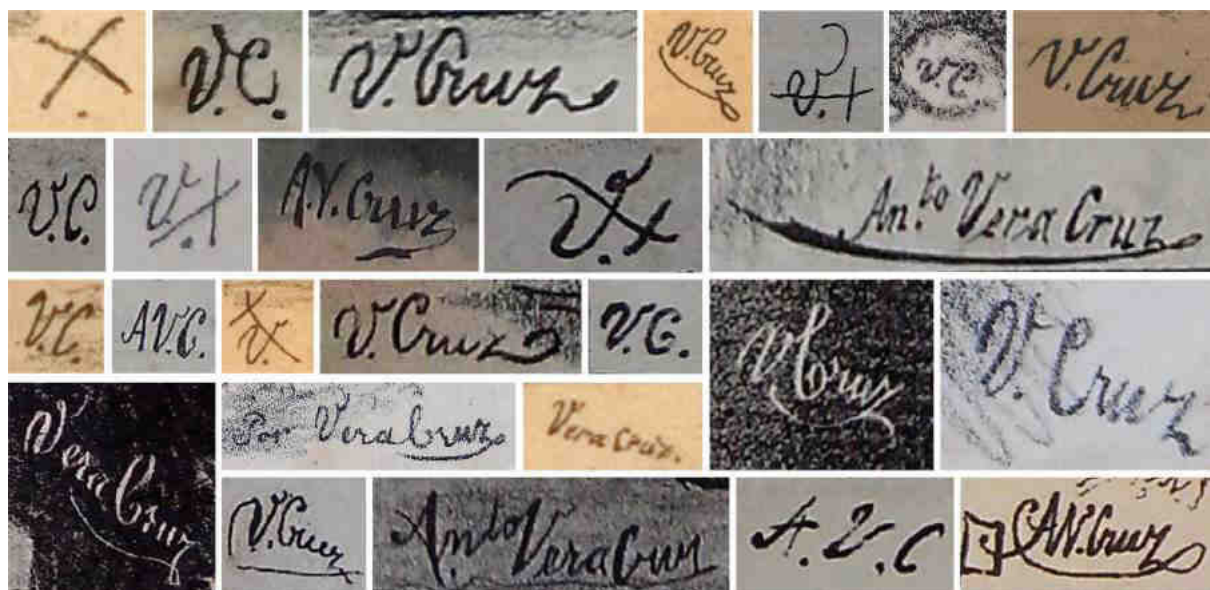 X.
V.C.
V. Cruz
V. Cruz
V.+
V.C.
V. Cruz
V.C.
V.+
A.V. Cruz
V.+
An.to Vera Cruz
V.C.
A V.C.
V.
V. Cruz
V.C.
V Cruz
V. Cruz
Vera Cruz
Por Vera Cruz
Vera Cruz.
V. Cruz
An.to Vera Cruz
A.V.C
A.V. Cruz